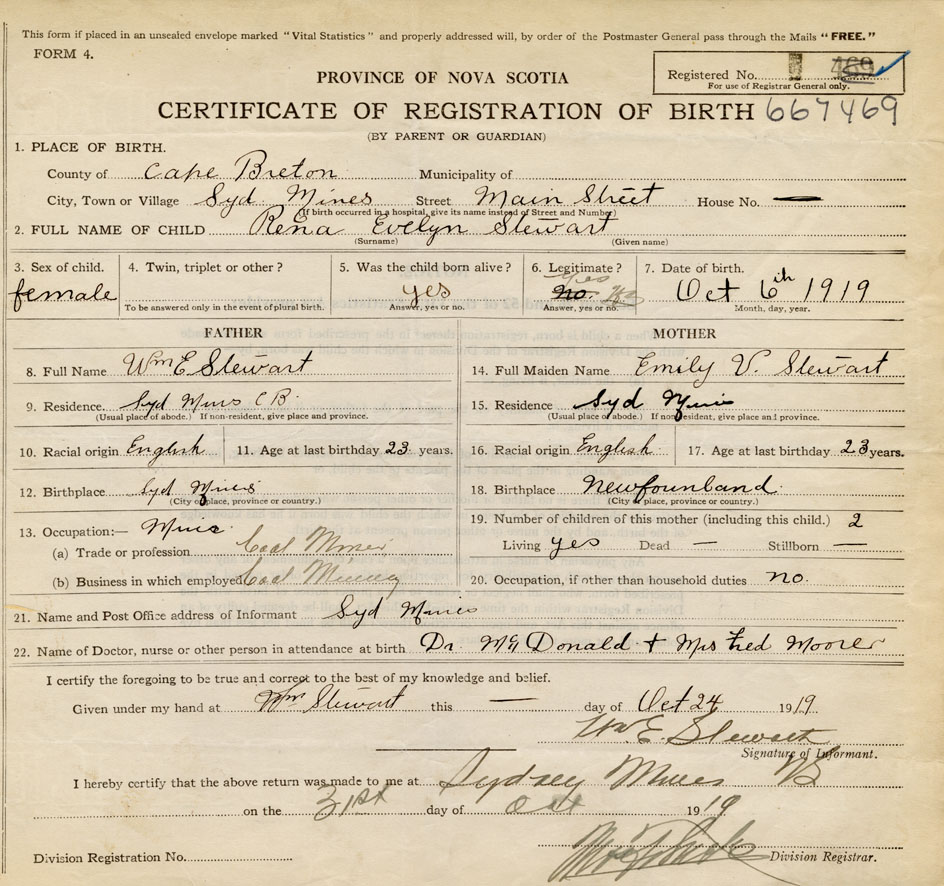 This form if placed in an unsealed envelope marked "Vital Statistics" and properly addressed will, by order of the Postmaster General pass through the Mails "FREE."
FORM 4.
PROVINCE OF NOVA SCOTIA
Registered No. 469
For use of Registrar General only.
CERTIFICATE OF REGISTRATION OF BIRTH 667469
(BY PARENT OR GUARDIAN)
1. PLACE OF BIRTH.
County of Cape Breton Municipality of
City, Town or Village Syd. Mines Street Main Street House No. —
(If birth occurred in a hospital, give its name instead of Street and Number)
2. FULL NAME OF CHILD Rena Evelyn Stewart
(Surname) (Given name)
3. Sex of child. 4. Twin, triplet or other? 5. Was the child born alive? 6. Legitimate? 7. Date of birth.
female yes no. yes Oct 6th 1919
To be answered only in the event of plural birth. Answer, yes or no. Answer, yes or no. Month, day, year.
FATHER MOTHER
8. Full Name Wm E Stewart 14. Full Maiden Name Emily V. Stewart
9. Residence Syd Mines C B. 15. Residence Syd Mines
(Usual place of abode.) If non-resident, give place and province. (Usual place of abode.) If non-resident, give place and province.
10. Racial origin English 11. Age at last birthday 23 years. 16. Racial origin English 17. Age at last birthday 23 years.
12. Birthplace Syd Mines 18. Birthplace Newfounland
(City or place, province or country.) (City or place, province or country.)
13. Occupation:— 19. Number of children of this mother (including this child.) 2
(a) Trade or profession Coal Miner Living yes Dead — Stillborn —
(b) Business in which employed Coal Mining 20. Occupation, if other than household duties no.
21. Name and Post Office address of Informant Syd Mines
22. Name of Doctor, nurse or other person in attendance at birth Dr. McDonald + Mrs Fred Moore
I certify the foregoing to be true and correct to the best of my knowledge and belief.
Given under my hand at Wm Stewart this — day of Oct 24 1919
Wm. E. Stewart
Signature of Informant.
I hereby certify that the above return was made to me at Sydney Mines
on the 31st day of Oct 1919
Division Registration No. Division Registrar.